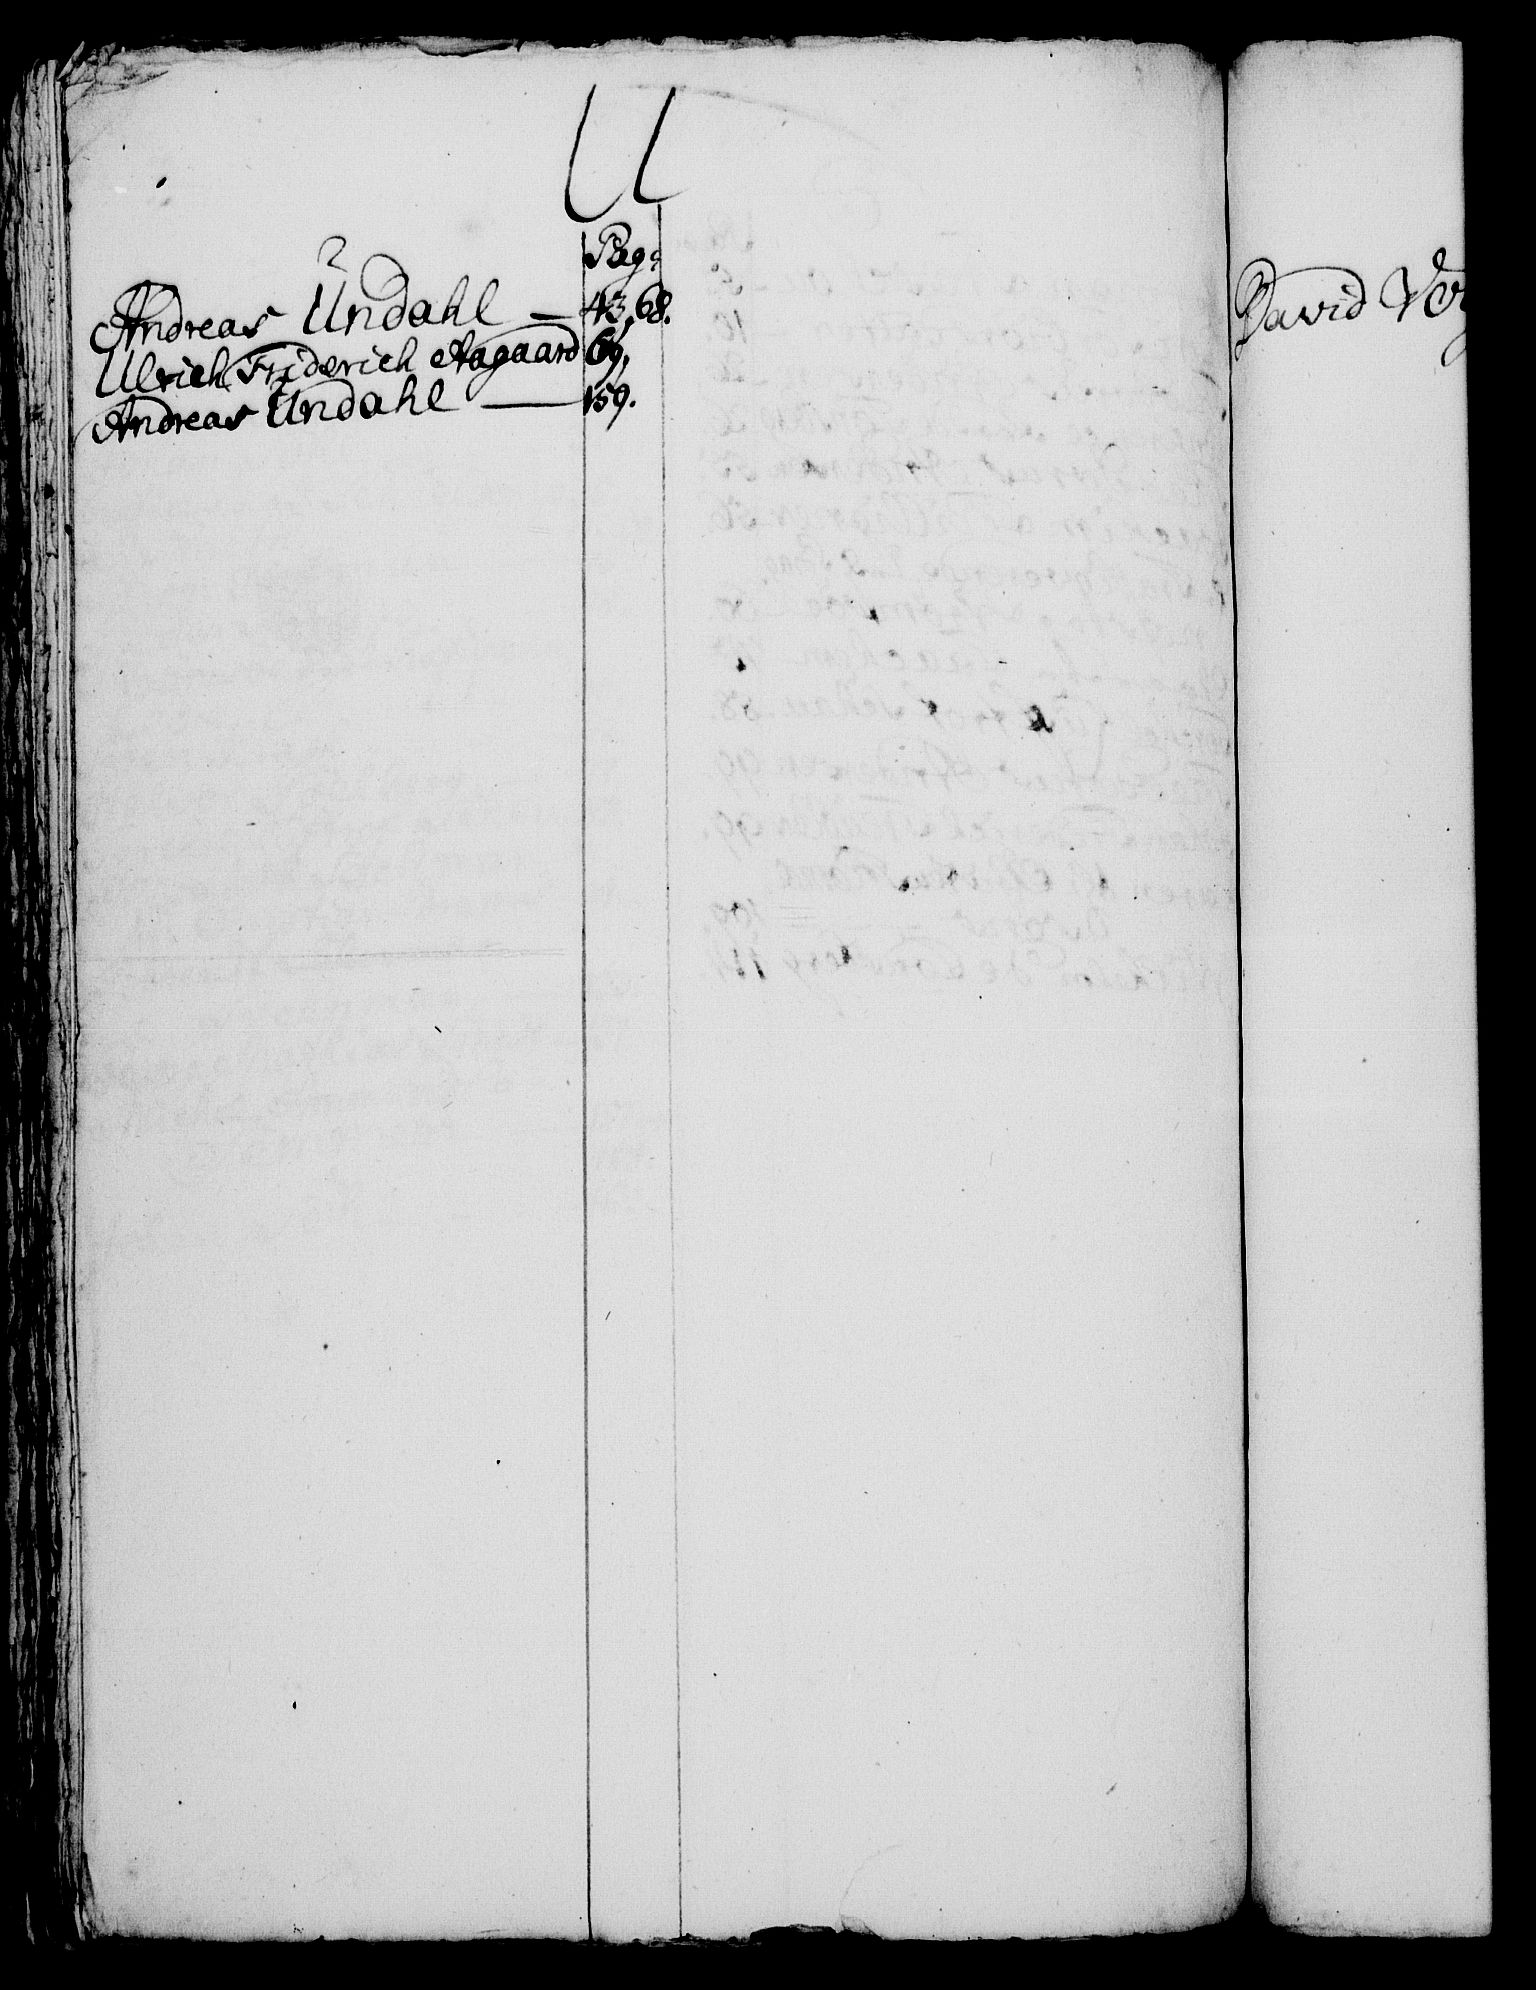 U
Pag:
Andreas Undahl — 43, 68.
Ulrich Friderich Aagaard 69.
Andreas Undahl — 159.
David